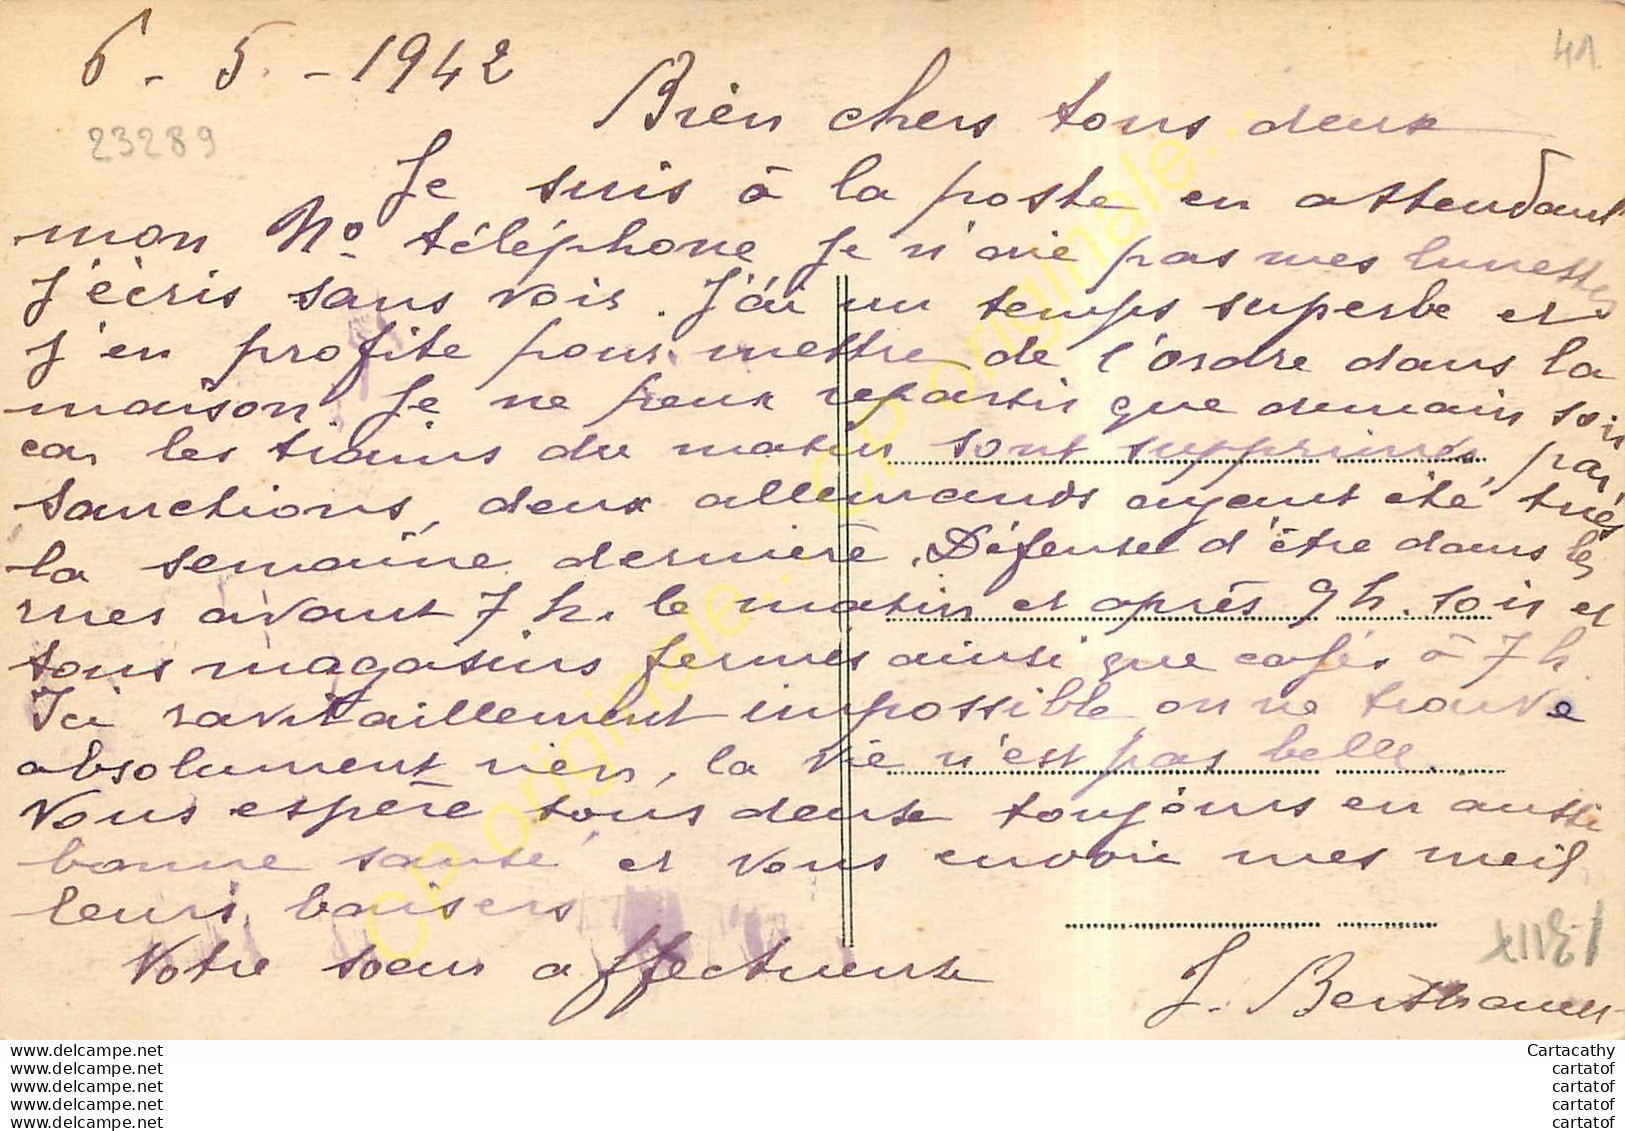 6 - 5 - 1942
41
23289
Bien chers tous deux
Je suis à la poste en attendant
mon No téléphone Je n'aie pas mes lunettes
J'écris sans voir. J'ai un temps superbe et
j'en profite pour mettre de l'ordre dans la
maison Je ne peux repartir que demain soir
car les trains du matin sont supprimés par
sanctions, deux allemands ayant été tués
la semaine dernière. Défense d'être dans les
rues avant 7 h. le matin et après 9 h. soir et
tous magasins fermés ainsi que cafés à 7 h
Ici ravitaillement impossible on ne trouve
absolument rien, la vie n'est pas belle.
Vous espère tous deux toujours en aussi
bonne santé et vous envoie mes meil
leurs baisers
Votre soeur affectueuse
J.
CP originale...
CP originale...
www.delcampe.net
www.delcampe.net
www.delcampe.net
www.delcampe.net
www.delcampe.net
Cartacathy
cartatof
cartatof
cartatof
cartatof